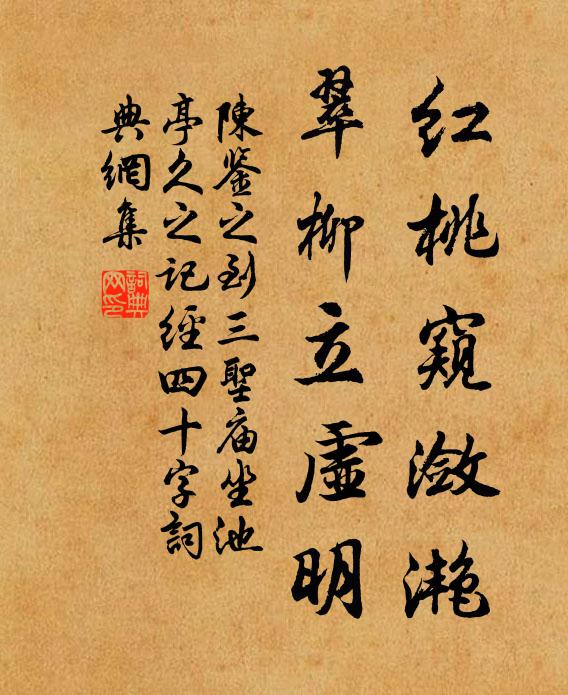 红桃窺潋滟
翠柳立虛明
陳鉴之到三聖庙坐池
亭久之记經四十字詞
典網集
詞典网印